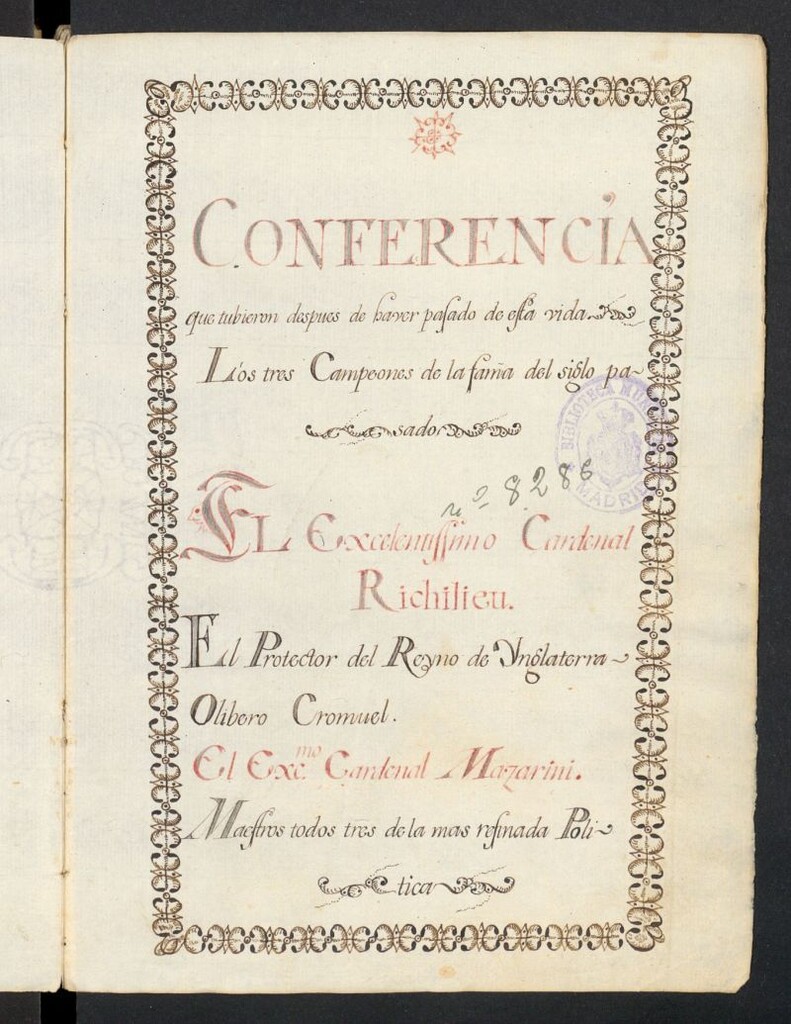 CONFERENCIA
que tubieron despues de haver pasado de esta vida
Los tres Campeones de la fama del siglo pa-
sado
BIBLIOTECA MUN
MADRID
nº 8.286
EL Excelentissimo Cardenal
Richilieu.
El Protector del Reyno de Ynglaterra
Olibero Cromuel.
El Exc.mo Cardenal Mazarini.
Maestros todos tres de la mas refinada Poli-
tica